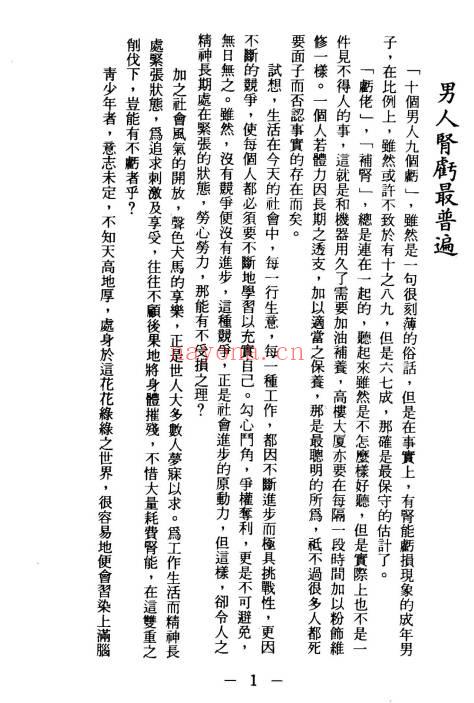 男人腎虧最普遍
「十個男人九個虧」，雖然是一句很刻薄的俗話，但是在事實上，有腎能虧損現象的成年男
子，在比例上，雖然或許不致於有十之八九，但是六七成，那確是最保守的估計了。
「虧佬」，「補腎」，總是連在一起的，聽起來雖然是不怎麼樣好聽，但是實際上也不是一
件見不得人的事，這就是和機器用久了需要加油補養，高樓大廈亦要在每隔一段時間加以粉飾維
修一樣。一個人若體力因長期之透支，加以適當之保養，那是最聰明的所爲，祇不過很多人都死
要面子而否認事實的存在而矣。
試想，生活在今天的社會中，每一行生意，每一種工作，都因不斷進步而極具挑戰性，更
不斷的競爭，使每個人都必須要不斷地學習以充實自己。勾心鬥角，爭權奪利，更是不可避免，
無日無之。雖然，沒有競爭便沒有進步，這種競爭，正是社會進步的原動力，但這樣，卻令人之
精神長期處在緊張的狀態，勞心勞力，那能有不受損之理？
加之社會風氣的開放，聲色犬馬的享樂，正是世人大多數人夢寐以求。爲工作生活而精神長
處緊張狀態，爲追求刺激及享受，往往不顧後果地將身體摧殘，不惜大量耗費腎能，在這雙重之
削伐下，豈能有不虧者乎？
靑少年者，意志未定，不知天高地厚，處身於這花花綠綠之世界，很容易地便會習染上滿腦
— 1 —
nayona.cn